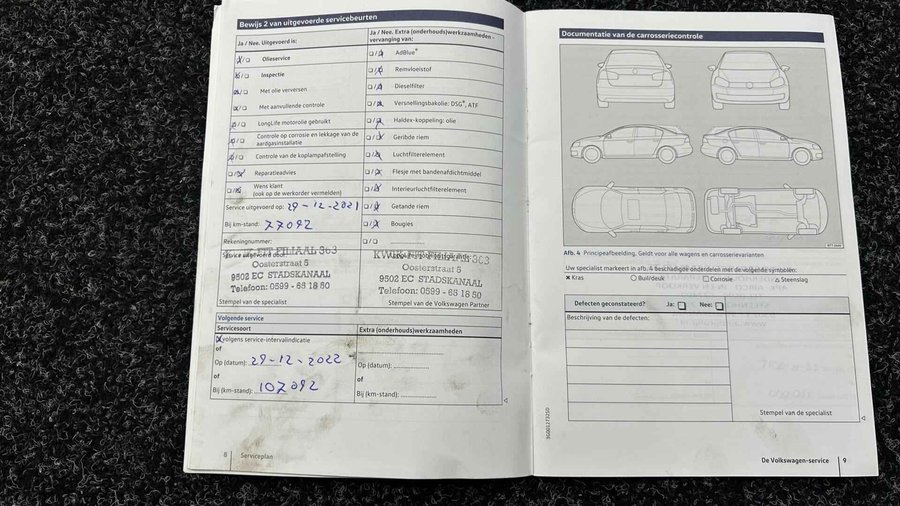 Bewijs 2 van uitgevoerde servicebeurten
Ja / Nee. Uitgevoerd is:
Olieservice
Inspectie
Met olie verversen
Met aanvullende controle
LongLife motorolie gebruikt
Controle op corrosie en lekkage van de
aardgasinstallatie
Controle van de koplampafstelling
Reparatieadvies
Wens klant
(ook op de werkorder vermelden)
Service uitgevoerd op: 29-12-2021
Bij km-stand: 77092
Rekeningnummer:
Service uitgevoerd door:
FILIAAL 363
Oosterstraat 5
9502 EC STADSKANAAL
Telefoon: 0599 - 65 18 50
Stempel van de specialist
Ja / Nee. Extra (onderhouds)werkzaamheden -
vervanging van:
AdBlue®
Remvloeistof
Dieselfilter
Versnellingsbakolie: DSG®, ATF
Haldex-koppeling: olie
Geribde riem
Luchtfilterelement
Flesje met bandenafdichtmiddel
Interieurluchtfilterelement
Getande riem
Bougies
Oosterstraat 5
9502 EC STADSKANAAL
Telefoon: 0599 - 65 18 50
Stempel van de Volkswagen Partner
Volgende service
Servicesoort
volgens service-intervalindicatie
of
Op (datum): 29-12-2022
of
Bij (km-stand): 107092
Extra (onderhouds)werkzaamheden
Op (datum):
of
Bij (km-stand):
8 Serviceplan
Documentatie van de carrosseriecontrole
Afb. 4 Principeafbeelding. Geldt voor alle wagens en carrosserievarianten
Uw specialist markeert in afb. 4 beschadigde onderdelen met de volgende symbolen:
Kras Buil/deuk Corrosie Steenslag
Defecten geconstateerd? Ja: Nee:
Beschrijving van de defecten:
Stempel van de specialist
De Volkswagen-service 9